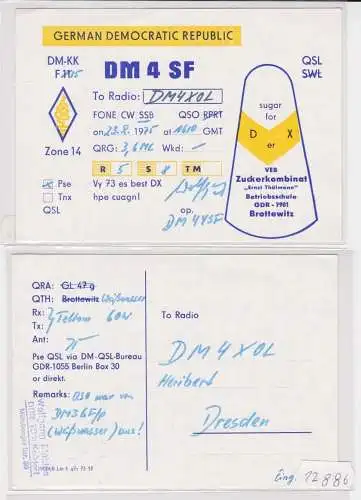 GERMAN DEMOCRATIC REPUBLIC
DM-KK
DM 4 SF
QSL
SWL
To Radio: DM4XOL
FONE CW SSB QSO RPRT
on 23.8.1975 at 1610 GMT
Zone 14
QRG: 3,6 Mc Wkd: —
R 5 S 8 TM
Pse Vy 73 es best DX
Tnx hpe cuagn!
QSL op.
DM4YSF
sugar
for
D X
er
VEB
Zuckerkombinat
„Ernst Thälmann"
Betriebsschule
GDR - 7901
Brottewitz
QRA: GL 47 g
QTH: Brottewitz Weißwasser
Rx:
Tx: Teltow 60W
Ant:
Pse QSL via DM-QSL-Bureau
GDR-1055 Berlin Box 30
or direkt.
Remarks: QSO war von
DM3GF/p
(Weißwasser) aus!
To Radio
DM4XOL
Heribert
Dresden
Eing. 12 8 86